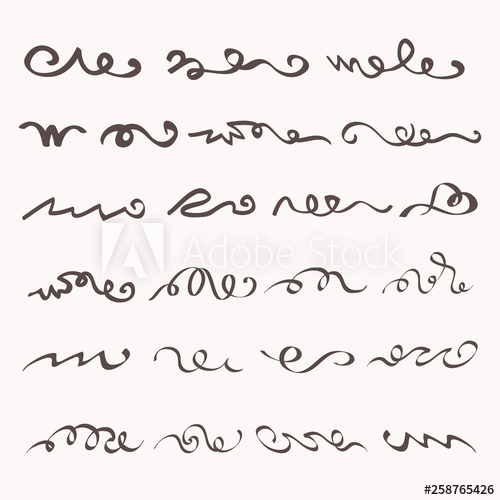 Adobe Stock
#258765426